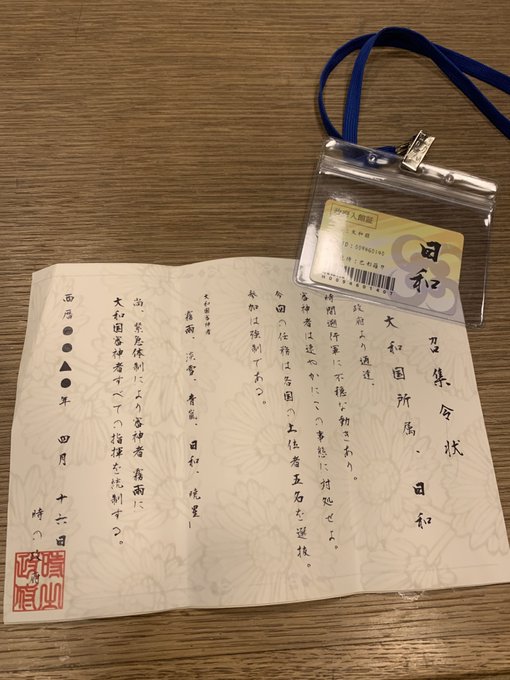 召集令状
大和国所属、日和
政府より通達、
時間遡行軍に不穏な動きあり。
審神者は速やかにこの事態に対処せよ。
今回の任務は各国の上位者五名を選抜。
参加は強制である。
大和国審神者
霧雨、淡雪、青嵐、日和、暁星
尚、緊急体制により審神者 霧雨に
大和国審神者すべての指揮を統制する。
西暦●●▲●年 四月 十六日
時の政府
時之政府
政府入館証
大和国
ID:009460140
日和